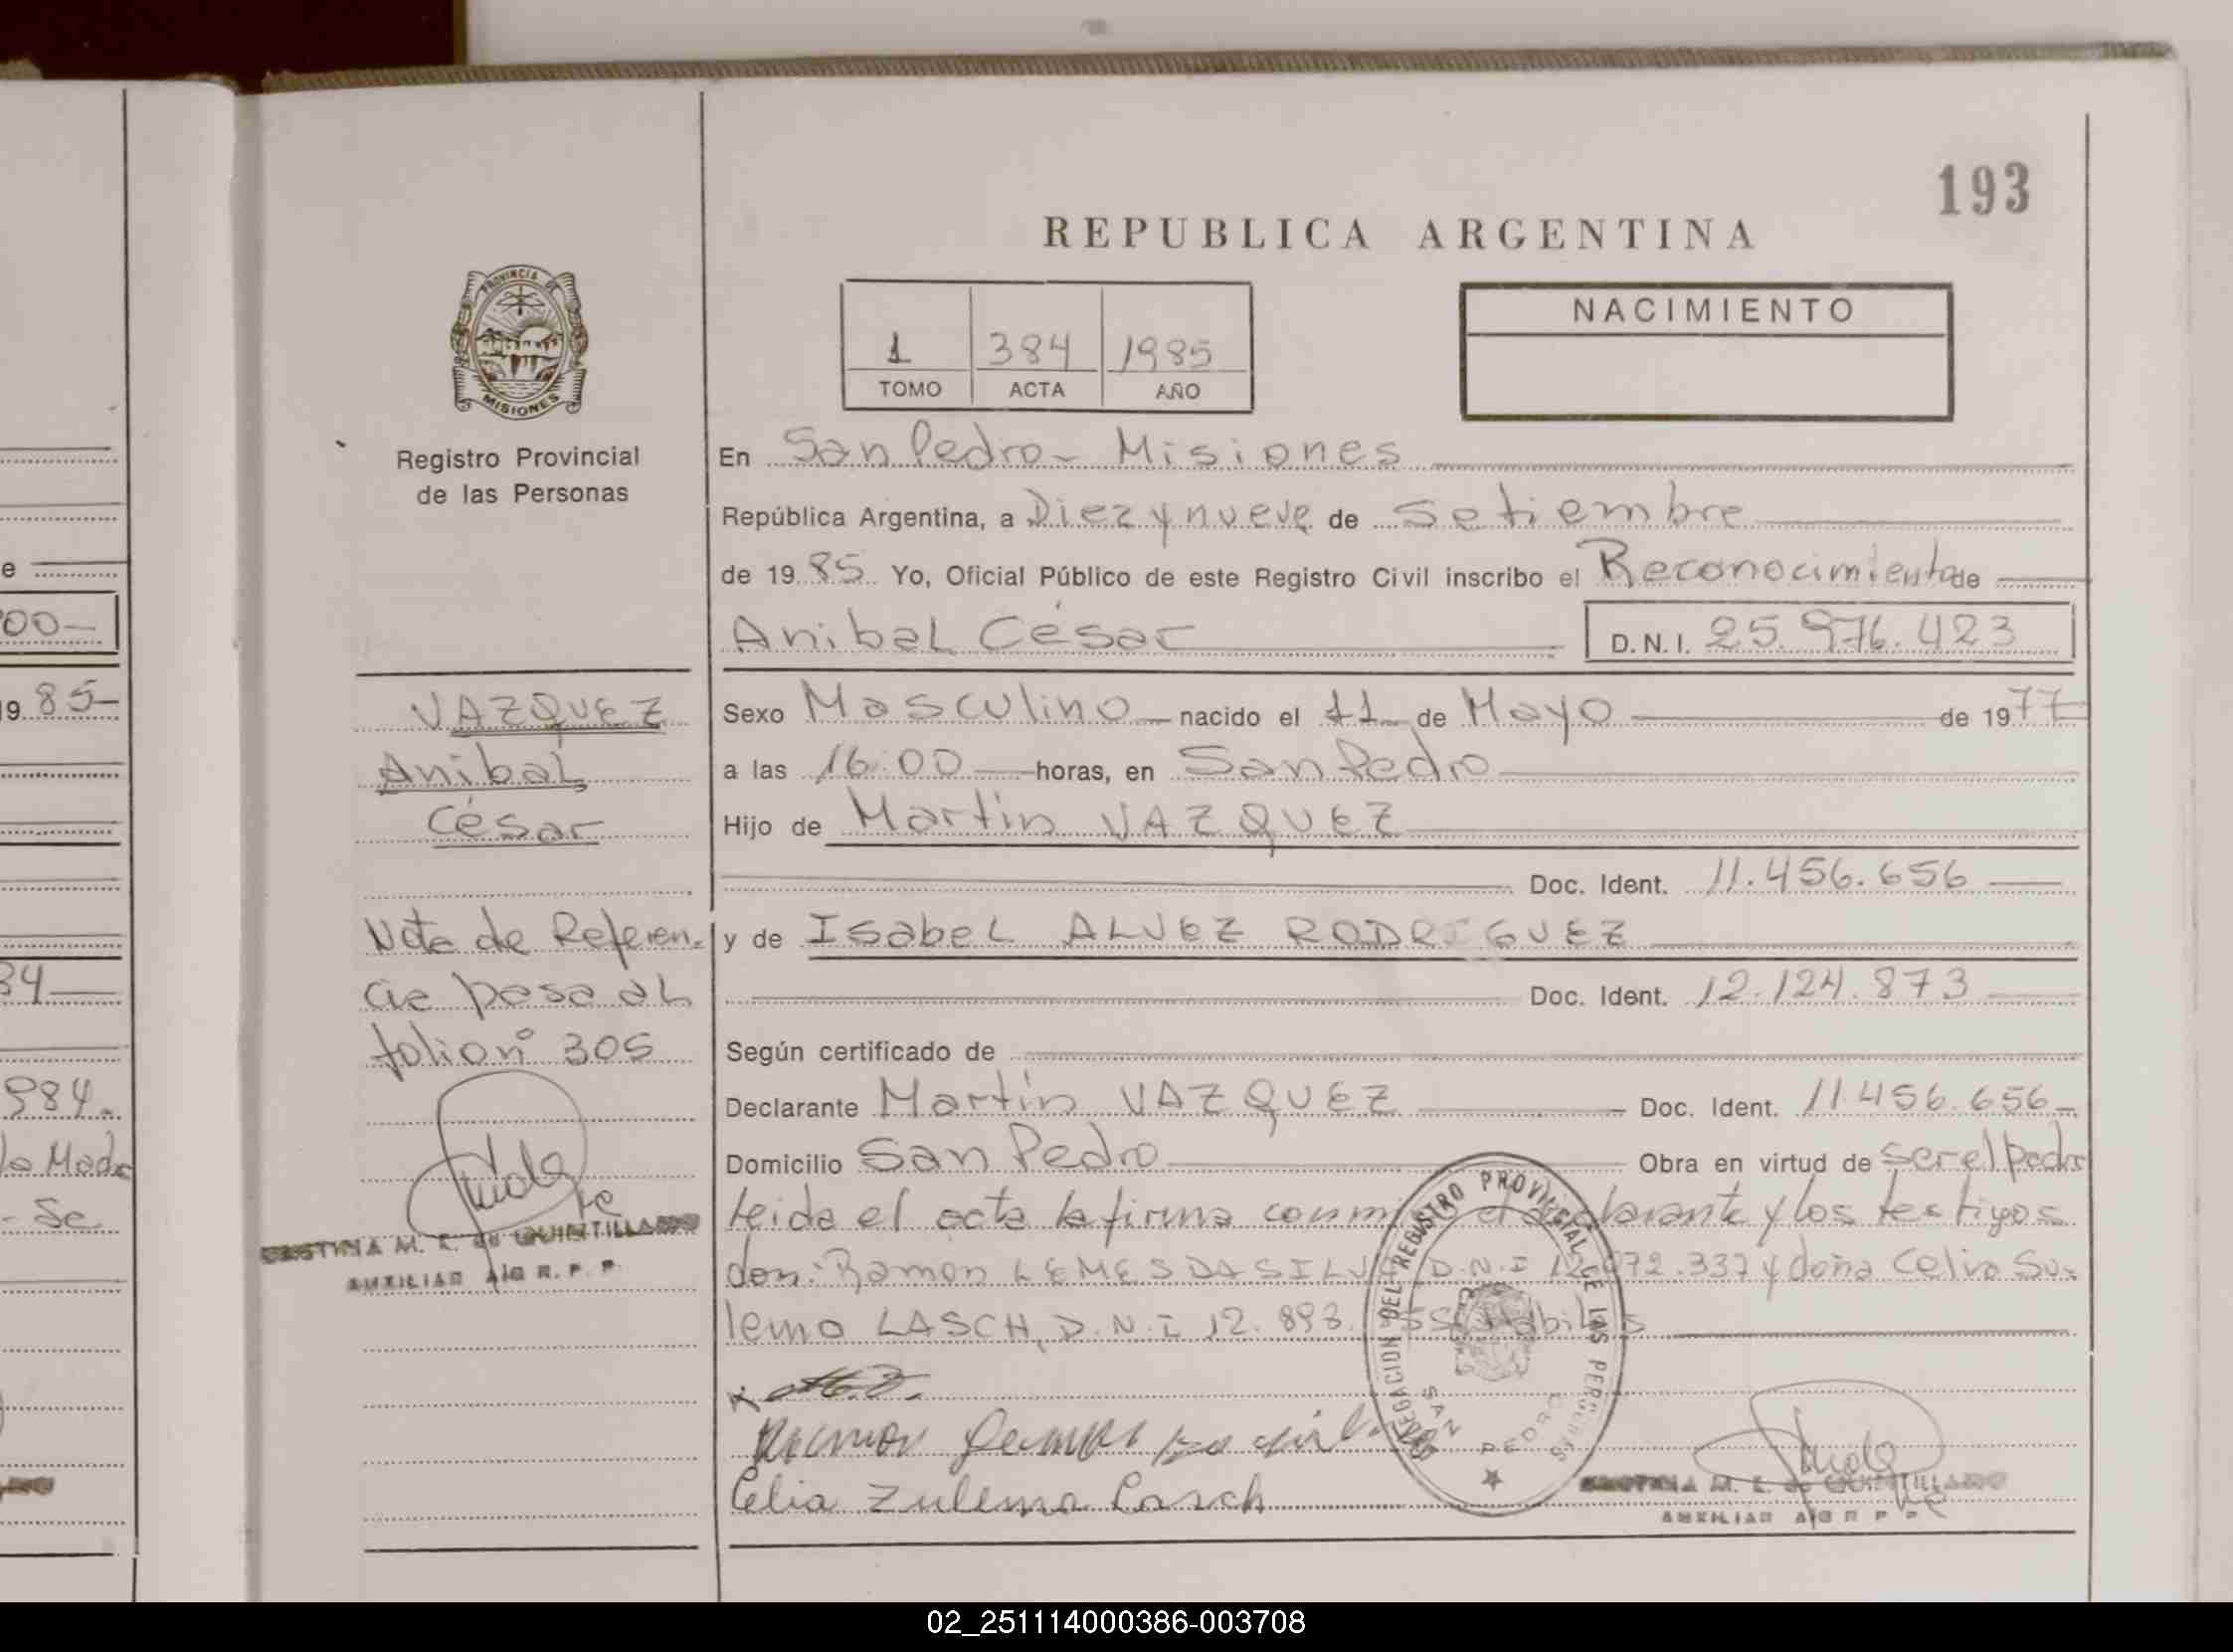 193
REPUBLICA ARGENTINA
PROVINCIA DE
MISIONES
Registro Provincial
de las Personas
1 384 1985
TOMO ACTA AÑO
NACIMIENTO
En San Pedro - Misiones
República Argentina, a Diez y nueve de Setiembre
de 1985 Yo, Oficial Público de este Registro Civil inscribo el Reconocimiento de
Anibal César D.N.I. 25.976.423
VAZQUEZ
Anibal
César
Sexo Masculino nacido el 11 de Mayo de 1977
a las 16:00 horas, en San Pedro
Hijo de Martin VAZQUEZ
Doc. Ident. 11.456.656
y de Isabel ALVEZ RODRIGUEZ
Doc. Ident. 12.124.873
Nota de Referen-
cia pasa al
folio nº 305
Según certificado de
Declarante Martin VAZQUEZ Doc. Ident. 11.456.656
Domicilio San Pedro Obra en virtud de ser el padre
leida el acta la firma conmigo el declarante y los testigos
don: Ramón LEMES DA SILVA D.N.I 072.337 y doña Celia Su-
lema LASCH, D.N.I 12.893. habiles
CRISTINA M. E. de QUINTILLANO
AUXILIAR A/G R. P. P.
DELEGACION DEL REGISTRO PROVINCIAL DE LAS PERSONAS
SAN PEDRO
MISIONES
Ramon Lemes da silva
Celia Zulema Lasch
CRISTINA M. E. de QUINTILLANO
AUXILIAR A/G R P P
e
00-
1985-
84
984.
la Madre
- Se
02_251114000386-003708